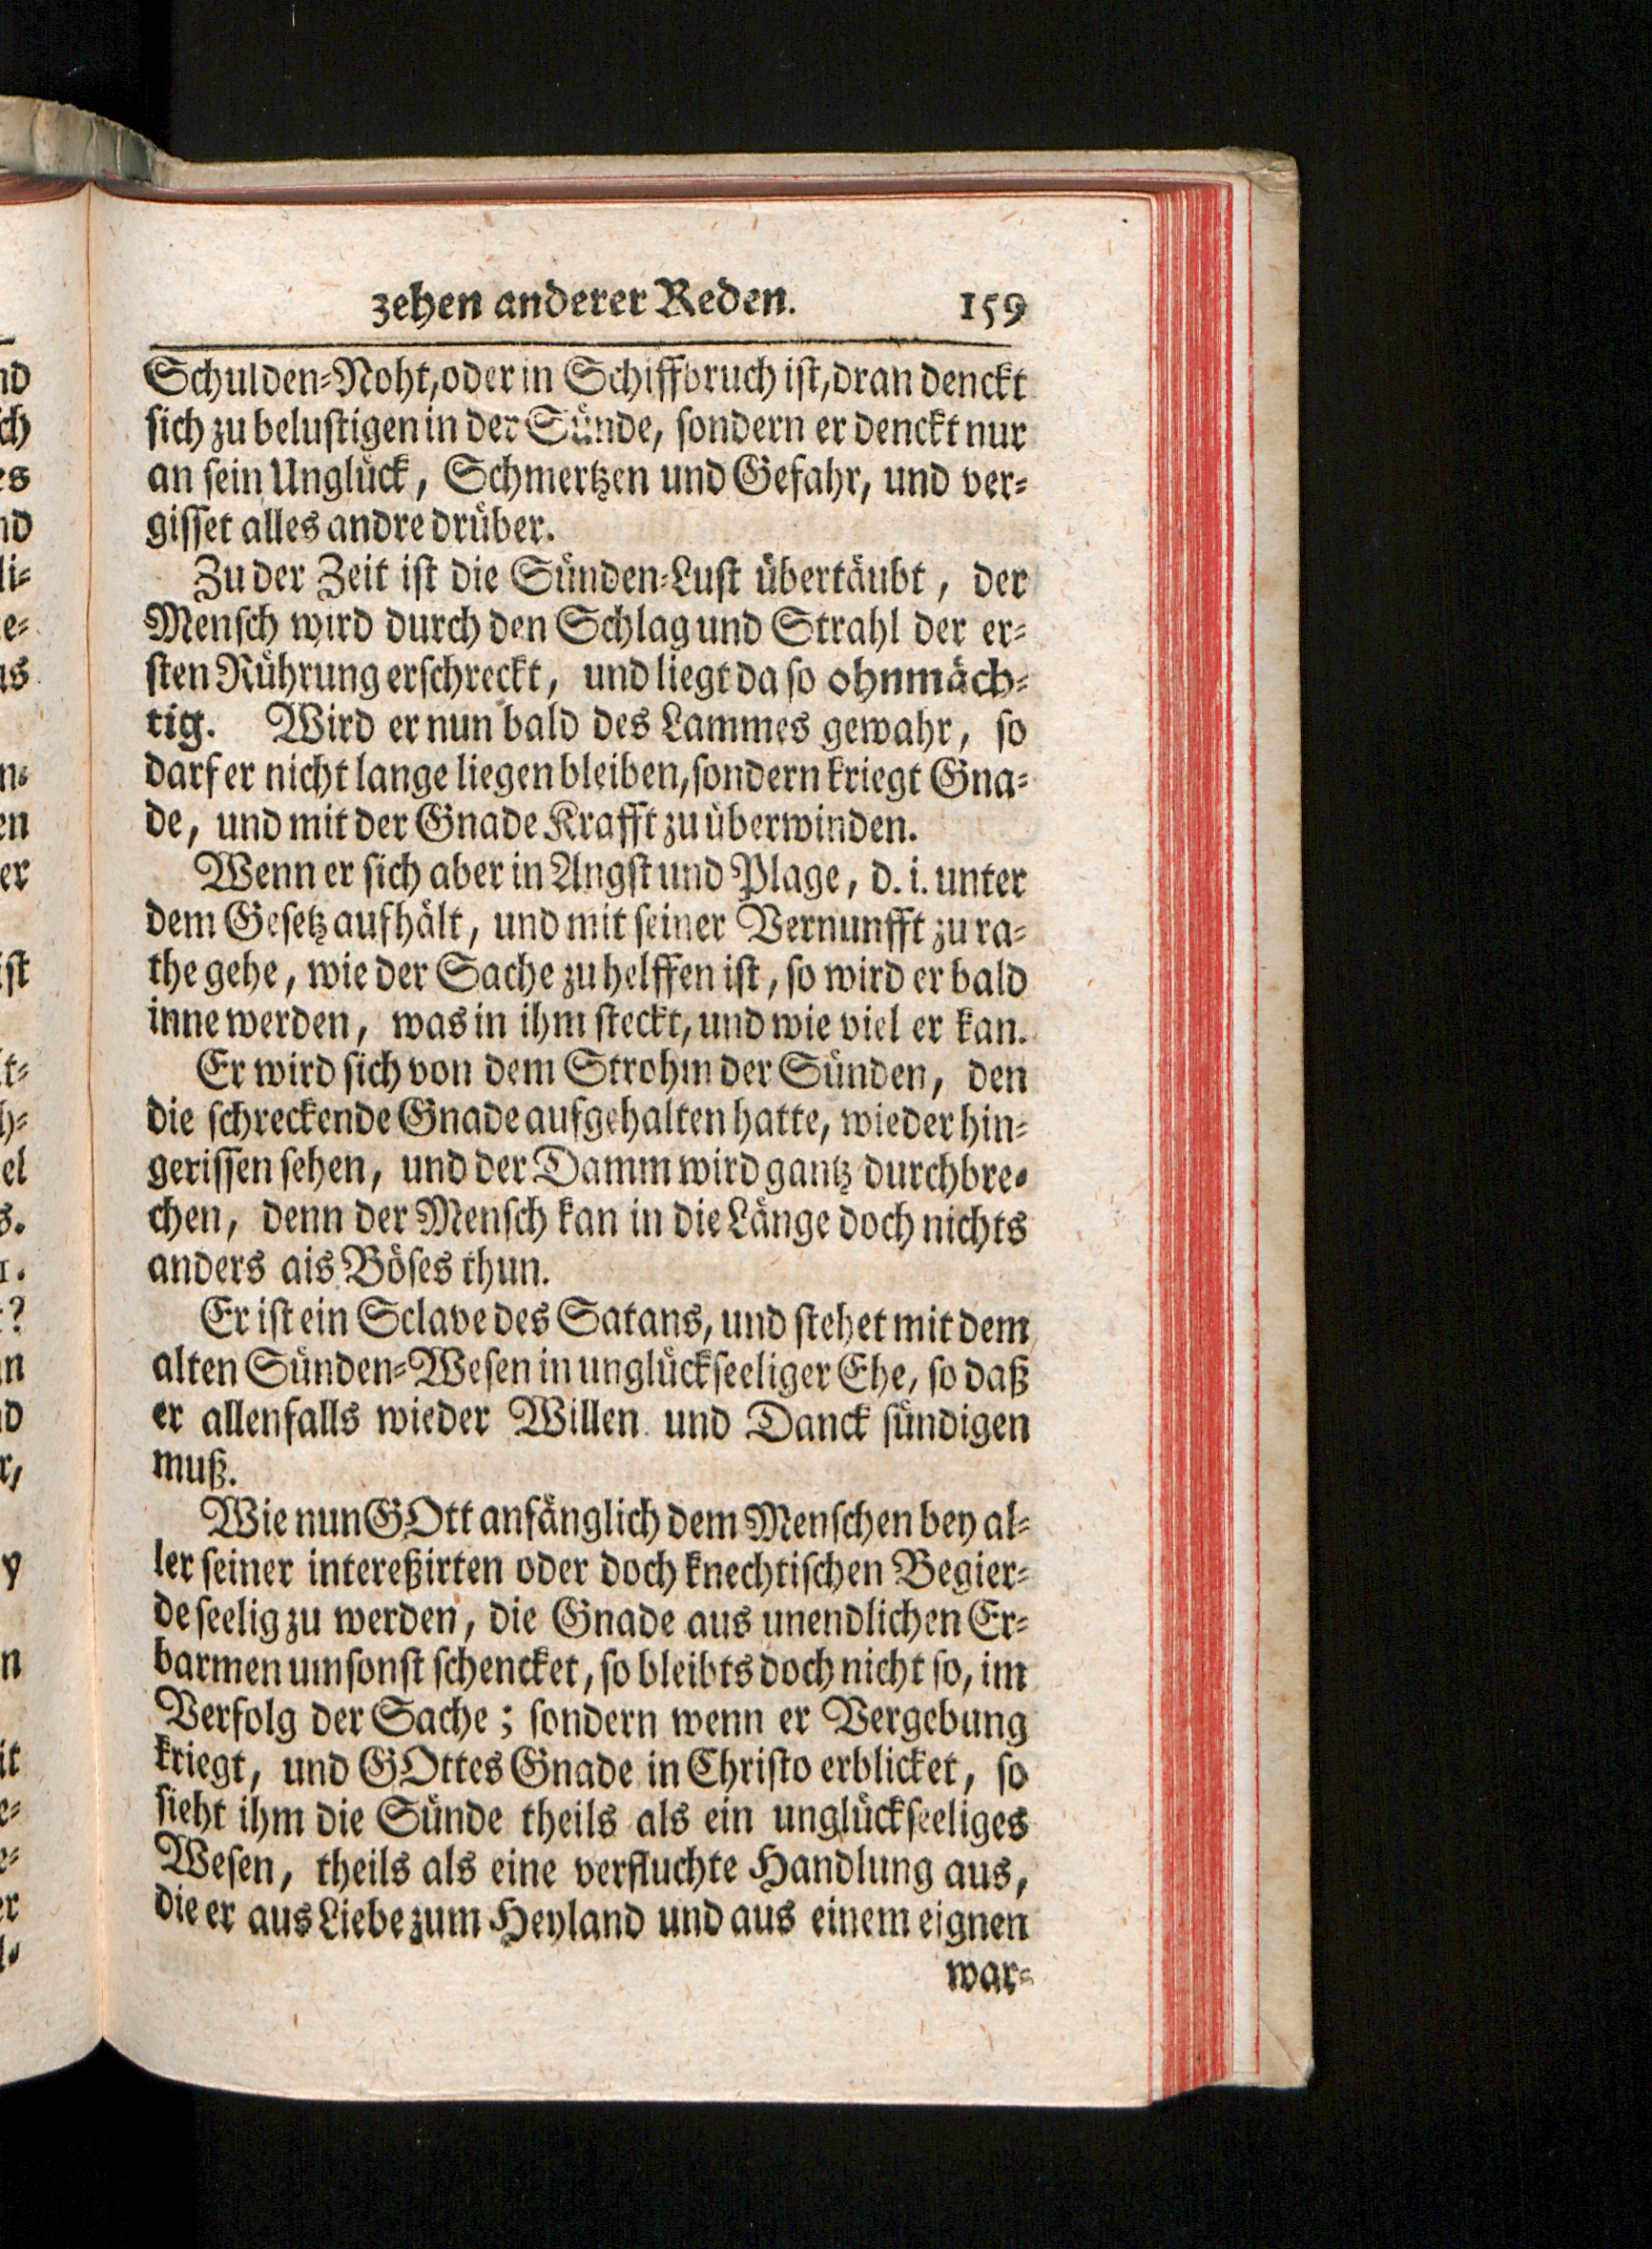 zehen anderer Reden. 159
Schulden-Noht, oder in Schiffbruch ist, dran denckt
sich zu belustigen in der Sünde, sondern er denckt nur
an sein Unglück, Schmertzen und Gefahr, und ver-
gisset alles andre drüber.
Zu der Zeit ist die Sünden-Lust übertäubt, der
Mensch wird durch den Schlag und Strahl der er-
sten Rührung erschreckt, und liegt da so ohnmäch-
tig. Wird er nun bald des Lammes gewahr, so
darf er nicht lange liegen bleiben, sondern kriegt Gna-
de, und mit der Gnade Krafft zu überwinden.
Wenn er sich aber in Angst und Plage, d. i. unter
dem Gesetz aufhält, und mit seiner Vernunfft zu ra-
the gehe, wie der Sache zu helffen ist, so wird er bald
inne werden, was in ihm steckt, und wie viel er kan.
Er wird sich von dem Strohm der Sünden, den
die schreckende Gnade aufgehalten hatte, wieder hin-
gerissen sehen, und der Damm wird gantz durchbre-
chen, denn der Mensch kan in die Länge doch nichts
anders ais Böses thun.
Er ist ein Sclave des Satans, und stehet mit dem
alten Sünden-Wesen in unglückseeliger Ehe, so daß
er allenfalls wieder Willen und Danck sündigen
muß.
Wie nun GOtt anfänglich dem Menschen bey al-
ler seiner intereßirten oder doch knechtischen Begier-
de seelig zu werden, die Gnade aus unendlichen Er-
barmen umsonst schencket, so bleibts doch nicht so, im
Verfolg der Sache; sondern wenn er Vergebung
kriegt, und GOttes Gnade in Christo erblicket, so
sieht ihm die Sünde theils als ein unglückseeliges
Wesen, theils als eine verfluchte Handlung aus,
die er aus Liebe zum Heyland und aus einem eignen
war-